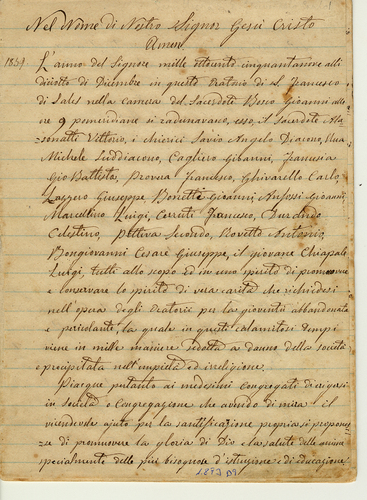 Nel Nome di Nostro Signor Gesù Cristo
Amen.
1859. L'anno del Signore mille ottocento cinquantanove alli
diciotto di Dicembre in questo Oratorio di S. Francesco
di Sales nella camera del Sacerdote Bosco Giovanni alle
ore 9 pomeridiane si radunavano, esso, il Sacerdote Ala-
sonatti Vittorio, i chierici Savio Angelo Diacono, Rua
Michele Suddiacono, Cagliero Giovanni, Francesia
Gio Battista, Provera Francesco, Ghivarello Carlo,
Lazzero Giuseppe, Bonetti Giovanni, Anfossi Giovanni,
Marcellino Luigi, Cerruti Francesco, Durando
Celestino, Pettiva Secondo, Rovetto Antonio,
Bongiovanni Cesare Giuseppe, il giovane Chiapale
Luigi, tutti allo scopo ed in uno spirito di promuovere
e conservare lo spirito di vera carità che richiedesi
nell'opera degli Oratorii per la gioventù abbandonata
e pericolante, la quale in questi calamitosi tempi
viene in mille maniere sedotta a danno della società
e precipitata nell'empietà ed irreligione.
Piacque pertanto ai medesimi Congregati di erigersi
in Società o Congregazione che avendo di mira il
vicendevole ajuto per la santificazione propria si propones-
se di promuovere la gloria di Dio e la salute delle anime
specialmente delle più bisognose d'istruzione e di educazione